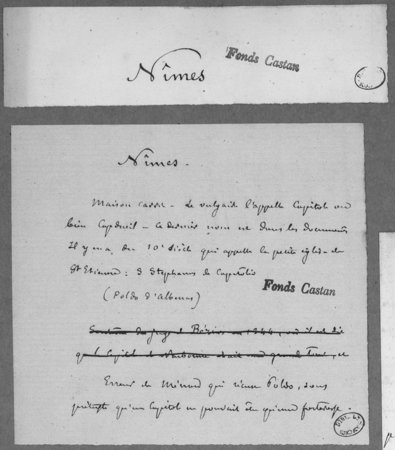 Nîmes
Fonds Castan
Nîmes.
Maison carrée - Le vulgaire l'appelle Capitol ou
bien Capdueil - ce dernier nom est dans les documents
Il y en a du 10e siècle qui appelle la petite église de
St Etienne : S Stephanus de Capitolio
(Poldo d'Albenas)
Fonds Castan
Sentence du juge de Béziers en 1344, où il est dit
que le Capitol de Narbonne était une grande Tour, et
Erreur de Ménard qui réfute Poldo, sous
prétexte qu'un Capitol ne pouvait être qu'une forteresse.